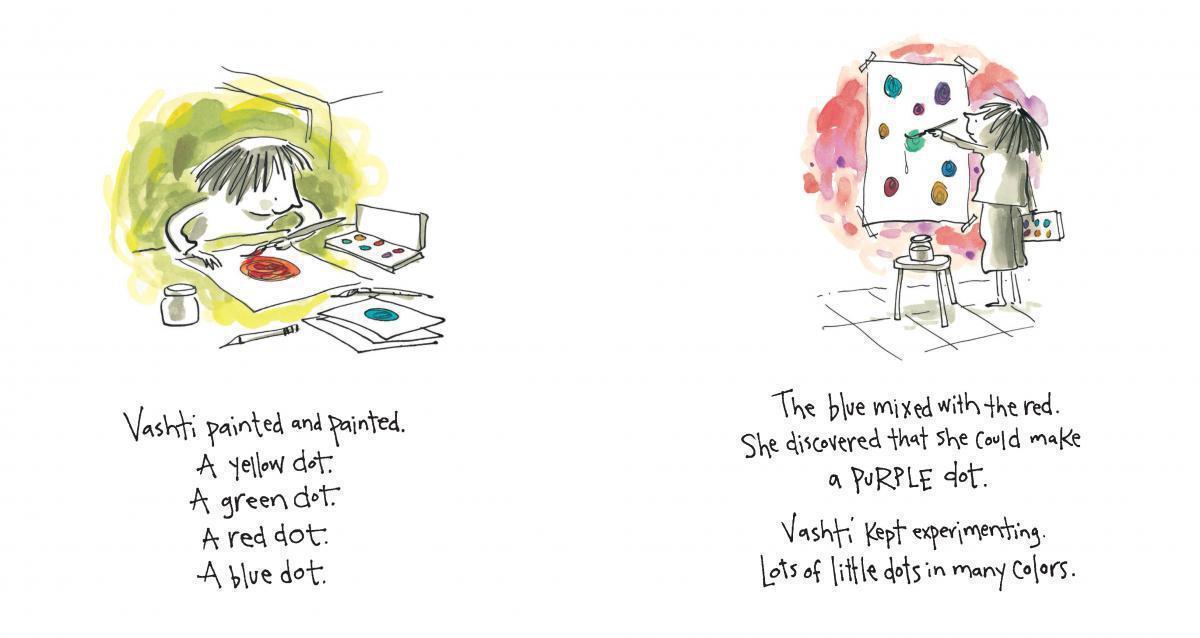 Vashti painted and painted.
A yellow dot.
A green dot.
A red dot.
A blue dot.
The blue mixed with the red.
She discovered that she could make
a PURPLE dot.
Vashti kept experimenting.
Lots of little dots in many colors.